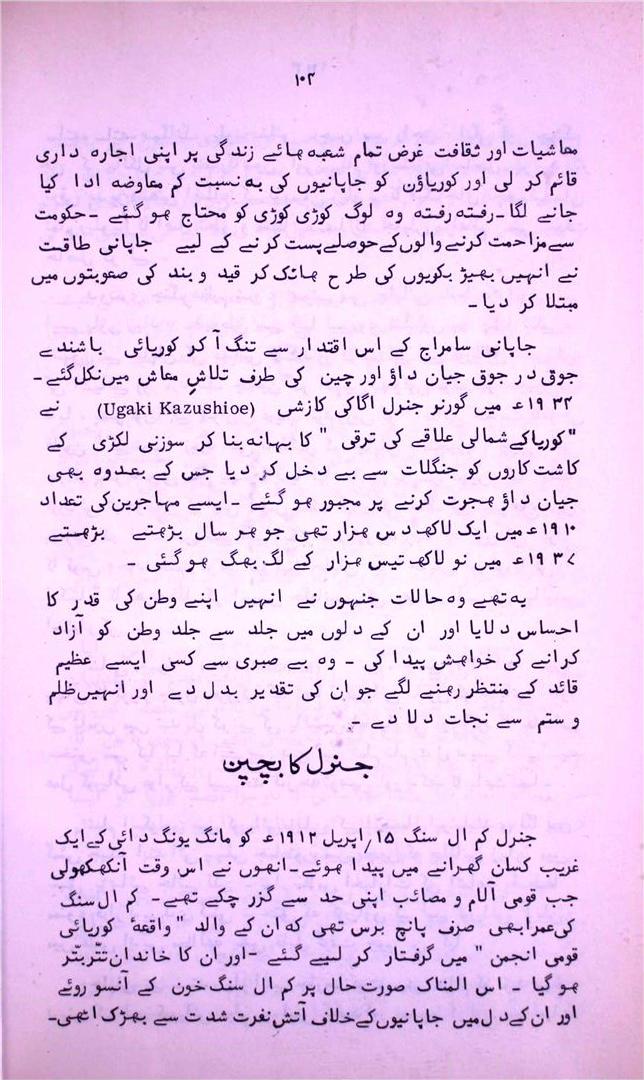 ۱۰۴
معاشیات اور ثقافت غرض تمام شعبہ ہائے زندگی پر اپنی اجارہ داری
قائم کر لی اور کوریاؤن کو جاپانیوں کی بہ نسبت کم معاوضہ ادا کیا
جانے لگا۔ رفتہ رفتہ وہ لوگ کوڑی کوڑی کو محتاج ہو گئے ۔ حکومت
سے مزاحمت کرنے والوں کے حوصلے پست کرنے کے لیے جاپانی طاقت
نے انہیں بھیڑ بکویوں کی طرح ہانک کر قید و بند کی صعوبتوں میں
مبتلا کر دیا ۔
جاپانی سامراج کے اس اقتدار سے تنگ آ کر کوریائی باشندے
جوق در جوق جیان داؤ اور چین کی طرف تلاشِ معاش میں نکل گئے ۔
۱۹۳۴ء میں گورنر جنرل اگاکی کازشی (Ugaki Kazushioe) نے
"کوریا کے شمالی علاقے کی ترقی" کا بہانہ بنا کر سوزنی لکڑی کے
کاشت کاروں کو جنگلات سے بے دخل کر دیا جس کے بعد وہ بھی
جیان داؤ ہجرت کرنے پر مجبور ہو گئے ۔ ایسے مہاجرین کی تعداد
۱۹۱۰ء میں ایک لاکھ دس ہزار تھی جو ہر سال بڑھتے بڑھستے
۱۹۳۷ء میں نو لاکھ تیس ہزار کے لگ بھگ ہو گئی ۔
یہ تھے وہ حالات جنہوں نے انہیں اپنے وطن کی قدر کا
احساس دلایا اور ان کے دلوں میں جلد سے جلد وطن کو آزاد
کرانے کی خواہش پیدا کی ۔ وہ بے صبری سے کسی ایسے عظیم
قائد کے منتظر رہنے لگے جو ان کی تقدیر بدل دے اور انہیں ظلم
و ستم سے نجات دلا دے ۔
جنرل کا بچپن
جنرل کم ال سنگ ۱۵/اپریل ۱۹۱۲ء کو مانگ یونگ دائی کے ایک
غریب کسان گھرانے میں پیدا ہوئے۔ انھوں نے اس وقت آنکھ کھولی
جب قومی آلام و مصائب اپنی حد سے گزر چکے تھے۔ کم ال سنگ
کی عمر ابھی صرف پانچ برس تھی کہ ان کے والد "واقعۂ کوریائی
قومی انجمن" میں گرفتار کر لیے گئے ۔ اور ان کا خاندان تتّر بتّر
ہو گیا ۔ اس المناک صورت حال پر کم ال سنگ خون کے آنسو روئے
اور ان کے دل میں جاپانیوں کے خلاف آتش نفرت شدت سے بھڑک اٹھی۔